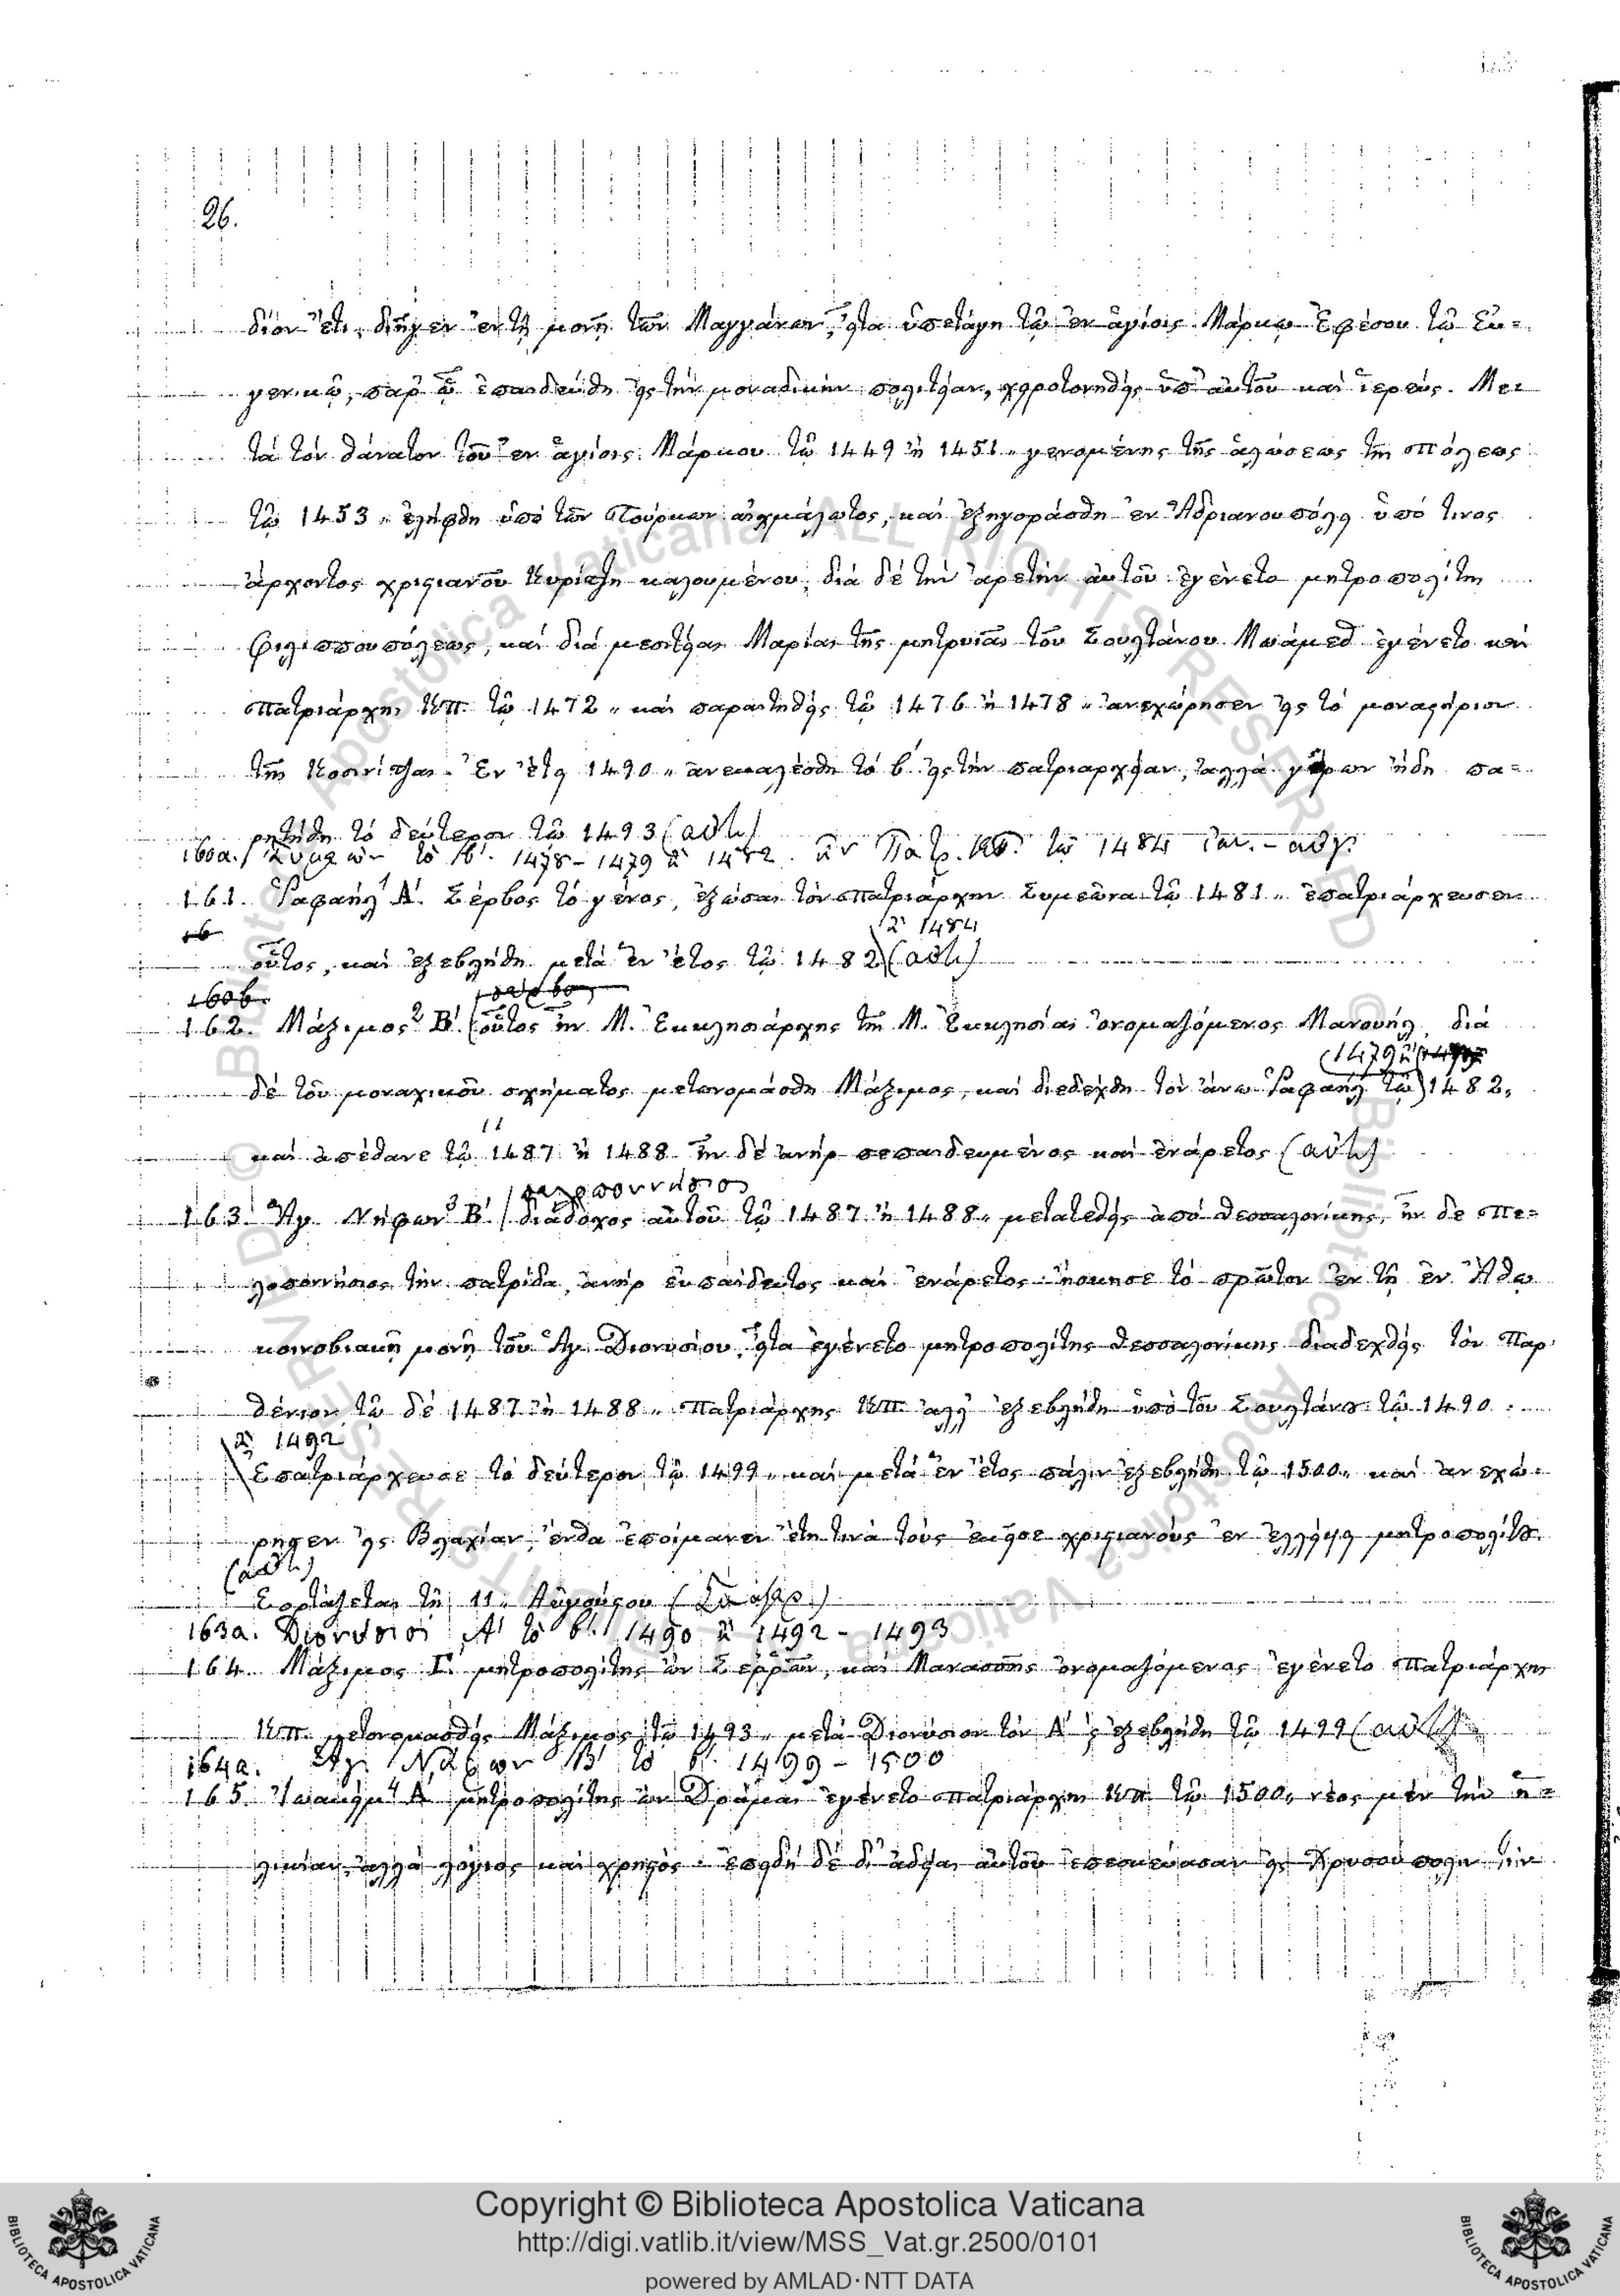 26.
δίον ἔτι, διῆγεν ἐν τῇ μονῇ τῶν Μαγγάνων, εἶτα ὑπετάγη τῷ ἐν ἁγίοις Μάρκῳ Ἐφέσου τῷ Εὐ=
γενικῷ, παρ' ᾧ ἐπαιδεύθη εἰς τὴν μοναδικὴν πολιτείαν, χειροτονηθεὶς ὑπ' αὐτοῦ καὶ ἱερεύς. Με=
τὰ τὸν θάνατον τοῦ ἐν ἁγίοις Μάρκου τῷ 1449 ἢ 1451 „ γενομένης τῆς ἁλώσεως τῆς Πόλεως
τῷ 1453 „ ἐλήφθη ὑπὸ τῶν Τούρκων αἰχμάλωτος, καὶ ἐξηγοράσθη ἐν Ἀδριανουπόλει ὑπό τινος
ἄρχοντος χριστιανοῦ Κυρίτζη καλουμένου, διὰ δὲ τὴν ἀρετὴν αὐτοῦ ἐγένετο μητροπολίτης
Φιλιππουπόλεως, καὶ διὰ μεσιτείας Μαρίας τῆς μητρυιᾶς τοῦ Σουλτάνου Μωάμεδ ἐγένετο καὶ
Πατριάρχης ΚΠ. τῷ 1472 „ καὶ παραιτηθεὶς τῷ 1476 ἢ 1478 „ ἀνεχώρησεν εἰς τὸ μοναστήριον
τῆς Κοσνίτζας. Ἐν ἔτει 1490 „ ἀνεκαλέσθη τὸ β'. εἰς τὴν πατριαρχείαν, ἀλλὰ γέρων ἤδη πα=
ρητήθη τὸ δεύτερον τῷ 1493 (αὐθ)
160a. / Συμεὼν τὸ β'. 1478 - 1479 ἢ 1482.
161. Ῥαφαὴλ Α'. Σέρβος τὸ γένος, ἐξώσας τὸν Πατριάρχην Συμεῶνα τῷ 1481 „ ἐπατριάρχευσεν
ἢ 1484
οὗτος, καὶ ἐξεβλήθη μετὰ ἓν ἔτος τῷ 1482 (αὐθ)
160b.
162. Μάξιμος Β'. (οὗτος ἦν Μ. Ἐκκλησιάρχης τῆς Μ. Ἐκκλησίας ὀνομαζόμενος Μανουήλ, διὰ
(1479 ἢ
δὲ τοῦ μοναχικοῦ σχήματος μετωνομάσθη Μάξιμος, καὶ διεδέχθη τὸν ἄνω Ῥαφαὴλ τῷ) 1482,
καὶ ἀπέθανε τῷ 1487 ἢ 1488 ἦν δὲ ἀνὴρ πεπαιδευμένος καὶ ἐνάρετος (αὐθ)
163. Ἅγ. Νήφων Β'. / διάδοχος αὐτοῦ τῷ 1487 ἢ 1488 „ μετατεθεὶς ἀπὸ Θεσσαλονίκης, ἦν δὲ Πε=
λοποννήσιος τὴν πατρίδα, ἀνὴρ εὐπαίδευτος καὶ ἐνάρετος ἤσκησε τὸ πρῶτον ἐν τῇ ἐν Ἄθῳ
κοινοβιακῇ μονῇ τοῦ Ἁγ. Διονυσίου, εἶτα ἐγένετο μητροπολίτης Θεσσαλονίκης διαδεχθεὶς τὸν Παρ
θένιον τῷ δὲ 1487 ἢ 1488 „ Πατριάρχης ΚΠ. ἀλλ' ἐξεβλήθη ὑπὸ τοῦ Σουλτάνου τῷ 1490.
ἢ 1492
Ἐπατριάρχευσε τὸ δεύτερον τῷ 1499 „ καὶ μετὰ ἓν ἔτος πάλιν ἐξεβλήθη τῷ 1500 „ καὶ ἀνεχώ=
ρησεν εἰς Βλαχίαν, ἔνθα ἐποίμανεν ἔτη τινὰ τοὺς ἐκεῖσε χριστιανοὺς ἐν ἐλλείψει μητροπολίτου.
(αὐθ)
Ἑορτάζεται τῇ 11 Αὐγούστου
163a. Διονύσιος Α' τὸ β'. 1490 ἢ 1492 - 1493
164. Μάξιμος Γ'. μητροπολίτης ὢν Σερρῶν, καὶ Μανασσῆς ὀνομαζόμενος ἐγένετο Πατριάρχης
ΚΠ. μετονομασθεὶς Μάξιμος τῷ 1493 „ μετὰ Διονύσιον τὸν Α' ἐξεβλήθη τῷ 1499 (αὐθ)
164a. Ἅγ. Νήφων Β' τὸ β'. 1499 - 1500
165. Ἰωακεὶμ Α' μητροπολίτης ὢν Δράμας ἐγένετο Πατριάρχης ΚΠ. τῷ 1500 „ νέος μὲν τὴν ἡ=
λικίαν, ἀλλὰ λόγιος καὶ χρηστός. ἐπειδὴ δὲ δι' ἀδείας αὐτοῦ ἐπεσκεύασαν εἰς
Copyright © Biblioteca Apostolica Vaticana
http://digi.vatlib.it/view/MSS_Vat.gr.2500/0101
powered by AMLAD·NTT DATA